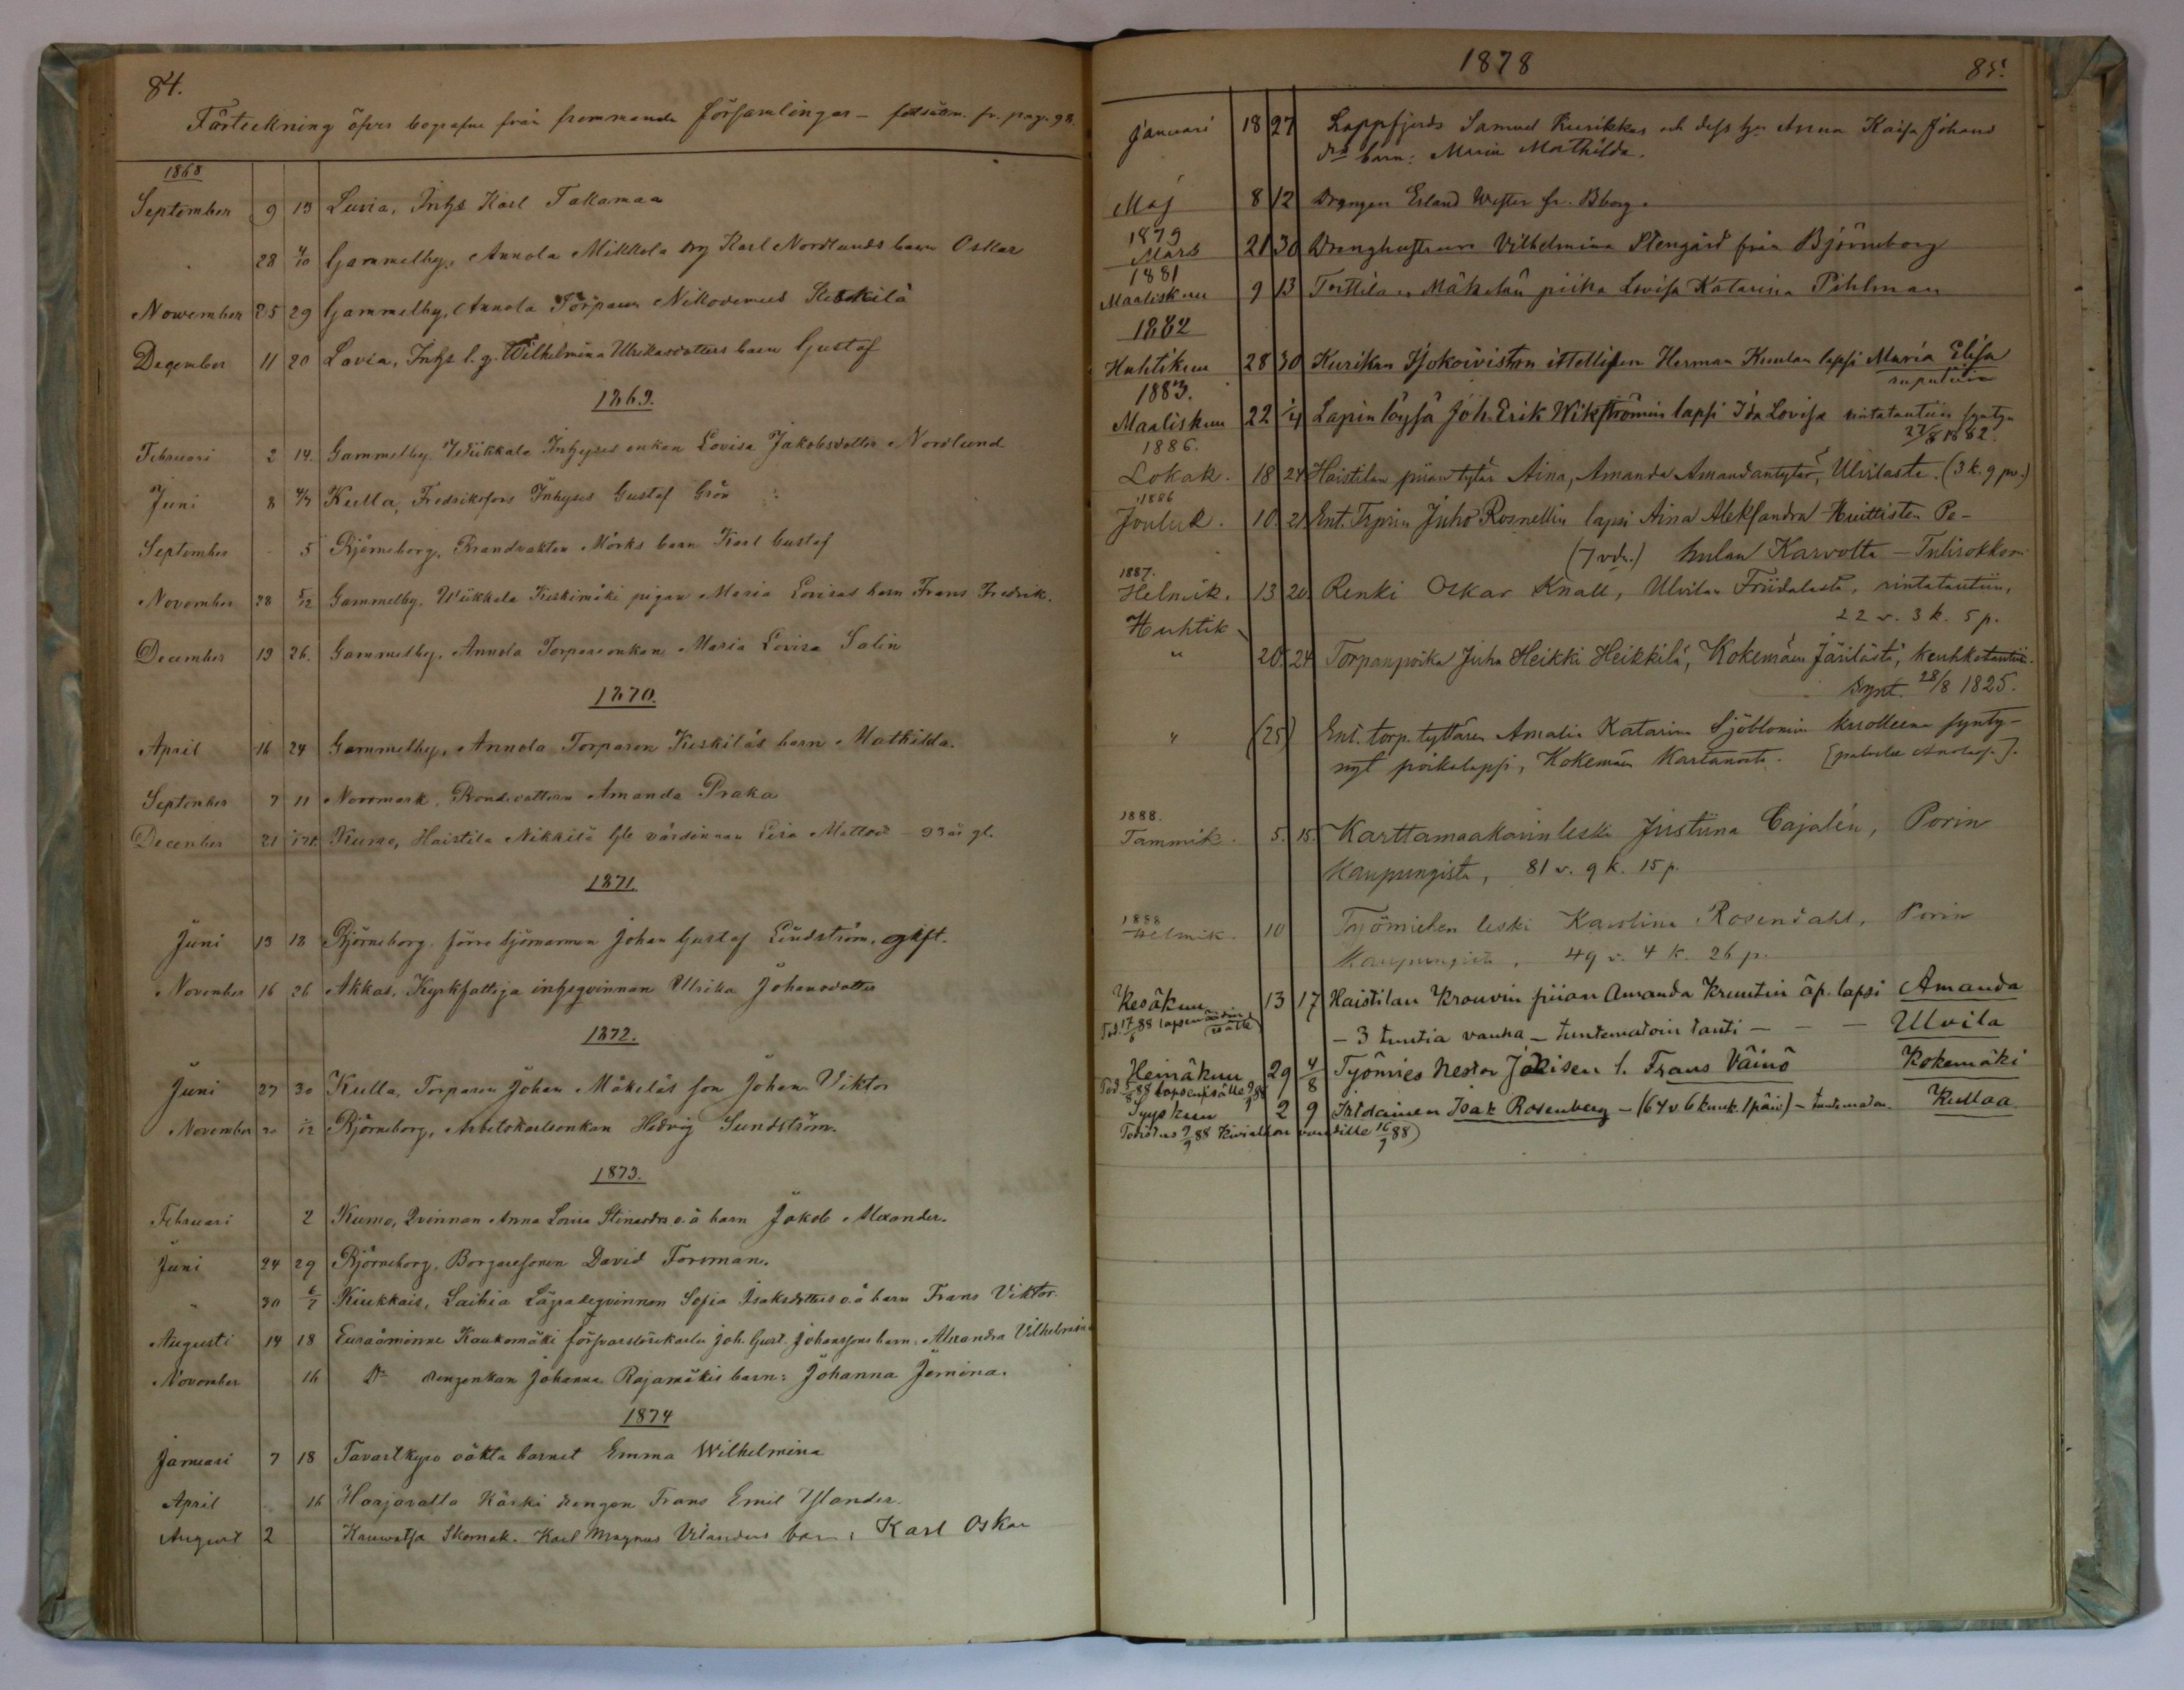 84.
Förteckning öfver begrafne från fremmande församlingar – fortsättn. fr. pag. 98.
1868
September 9 13 Luvia, Inhs Karl Takamaa
28 4/10 Gammelby, Annola Mikkola Karl Nordlunds barn Oskar
November 25 29 Gammelby, Annola Torparen Nikodemus Keskilä
December 11 20 Lavia, Inhs Wilhelmina Ulrikasdotters barn Gustaf
1869.
Februari 2 14. Gammelby Wiikkala Inhyses enkan Lovisa Jakobsdotter Nordlund
Juni 8 Kulla, Fredriksfors Inhyses Gustaf Grön
September - 5 Björneborg, Brandvakten Mörks barn Karl Gustaf
November 28 5/12 Gammelby. Wiikkala Keskimäki pigan Maria Lovisas barn Frans Fredrik.
December 19 26. Gammelby, Annola Torpareenkan Maria Lovisa Salin
1870.
April 16 24 Gammelby, Annola Torparen Keskiläs barn Mathilda.
September 7 11 Norrmark, Bondedottern Amanda Praka
December 21 Kumo, Haistila Nikkilä värdinnan Lisa Mattsd – 93 år gl.
1871.
Juni 13 18 Björneborg. förre sjömannen Johan Gustaf Lindström, ogift.
November 16 26 Akkas, Kyrkfattiga inhsqvinnan Ulrika Johansdotter
1872.
Juni 27 30 Kulla, Torparen Johan Mäkeläs son Johan Viktor
November 20 1/12 Björneborg, Arbetskarlsenkan Hedvig Sundström.
1873.
Februari 2 Kumo, Qvinnan Anna Lovisa Stinasdrs o.ä barn Jakob Alexander.
Juni 24 29 Björneborg, Borgaresonen David Forsman.
" 30 6/7 Kiukkais, Laihia Lägradeqvinnan Sofia Isaksdotters o.ä barn Frans Viktor.
Augusti 14 18 Euraåminne Kaukomäki Joh. Gust. Johanssons barn Alexandra Vilhelmina
November 16 Do drengenkan Johanna Rajamäkis barn: Johanna Jemina.
1874
Januari 7 18 Tavastkyro oäkta barnet Emma Wilhelmina
April 16 Harjavalta Käski drengen Frans Emil Ylander.
August 2 Kauvatsa Skomak. Karl Magnus Velanders barn: Karl Oskar
1878
85.
Januari 18 27 Lappfjerds Samuel Kurikkas och dess hu Anna Kaisa Johans
dr barn: Maria Mathilda.
Maj 8 12 Drängen Erland Wester fr. Bborg.
1879
Mars 21 30 Drenghustrun Vilhelmina Stengård från Björneborg
1881
Maaliskuu 9 13 Torttilan Mäkelän piika Lovisa Katarina Pihlman
1882
Huhtikuu 28 30 Kurikan Isokoiviston itsellisen Herman Kuulan lapsi Maria Elisa
1883.
Maaliskuu 22 1/4 Lapin löysä Joh. Erik Wikströmin lapsi Ida Lovisa rintatautiin syntyn
27/8 1882.
1886.
Lokak. 18 24 Haistilan piian tytär Aina, Amanda Amandantytär, Ulvilasta. (3 k. 9 pv.)
1886
Jouluk. 10. 21. Ent. Torprin Juho Rosnellin lapsi Aina Aleksandra Huittisten Pe-
(7 vdn.) hulan Karvolta – Tulirokkoon
1887.
Helmik. 13 20. Renki Oskar Knall, Ulvilan Friidalasta, rintatautiin,
22 v. 3 k. 5 p.
Huhtik
" 20. 24 Torpanpoika Juha Heikki Heikkilä, Kokemäen Järilästä, keuhkotautiin.
Synt. 28/8 1825.
" (25) Ent. torp. tyttären Amalia Katarina Sjöblomin kuolleena synty-
nyt poikalapsi, Kokemäen Kartanosta.
1888.
Tammik. 5. 15. Karttamaakarin leski Justiina Cajalén, Porin
Kaupungista, 81 v. 9 k. 15 p.
1888
Helmik. 10 Työmiehen leski Karolina Rosendahl, Porin
Kaupungista, 49 v. 4 k. 26 p.
Kesäkuu 13 17 Haistilan Krouvin piian Amanda Kruutin äp. lapsi Amanda
Tod. 17/6 88 lapsen äidin isälle
– 3 tuntia vanha – tuntematoin tauti – – – Ulvila
Heinäkuu 29 4/8 Työmies Nestor l. Frans Väinö Kokemäki
Tod. 88 lapsen isälle 88
Syyskuu 2 9 Itsellinen Isak Rosenberg – (64 v 6 kuuk. 1 päiv) – tuntematon Kullaa
Todistus 9/9 88 16/9 88)